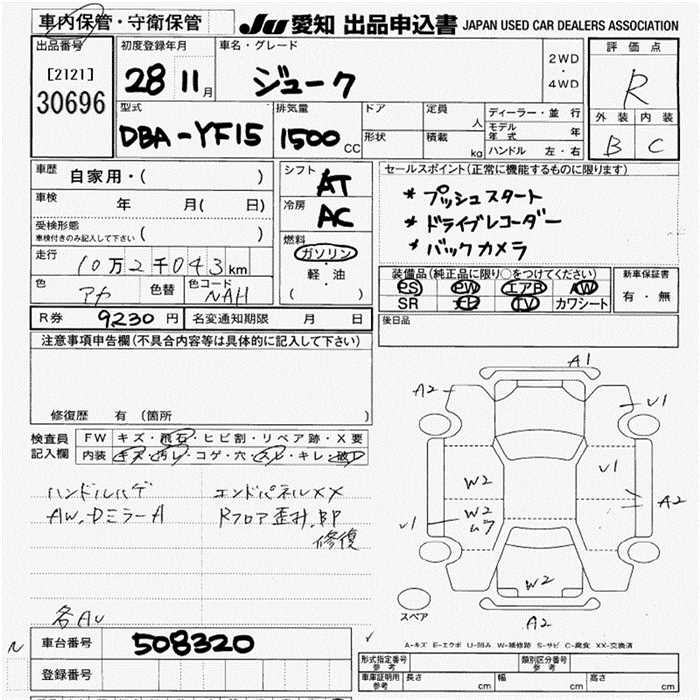 車内保管・守衛保管
JU 愛知 出品申込書 JAPAN USED CAR DEALERS ASSOCIATION
出品番号
[2121]
30696
初度登録年月
28 11月
車名・グレード
ジューク
2WD
・
4WD
評価点
R
外装 内装
B C
型式
DBA-YF15
排気量
1500 CC
ドア
形状
定員 人
積載 kg
ディーラー・並行
モデル年式 年
ハンドル 左・右
車歴 自家用・( )
車検 年 月( 日)
受検形態
車検付きのみ記入して下さい ( )
走行 10万2千043km
色 アカ 色替 色コード NAH
シフト AT
冷房 AC
燃料
ガソリン
・
軽・油
( )
セールスポイント(正常に機能するものに限ります)
* プッシュスタート
* ドライブレコーダー
* バックカメラ
装備品(純正品に限り○をつけてください)
PS PW エアB AW
SR ナビ TV カワシート
新車保証書
有・無
R券 9230円 名変通知期限 月 日
後日品
注意事項申告欄(不具合内容等は具体的に記入して下さい)
修復歴 有 (箇所 )
検査員記入欄
FW キズ・飛石・ヒビ割・リペア跡・X要
内装 キズ・汚レ・コゲ・穴・スレ・キレ・破レ
ハンドルハゲ
AW、DミラーA
エンドパネルXX
Rフロア歪ミ、BP
修復
各AU
A1
A2
U1
W2
U1
W2
ムラ
A2
U1
W2
A2
スペア
A-キズ E-エクボ U-凹み W-補修跡 S-サビ C-腐食 XX-交換済
車台番号 508320
登録番号
型式指定番号 参考
類別区分番号 参考
車庫証明用 参考 長さ cm 幅 cm 高さ cm